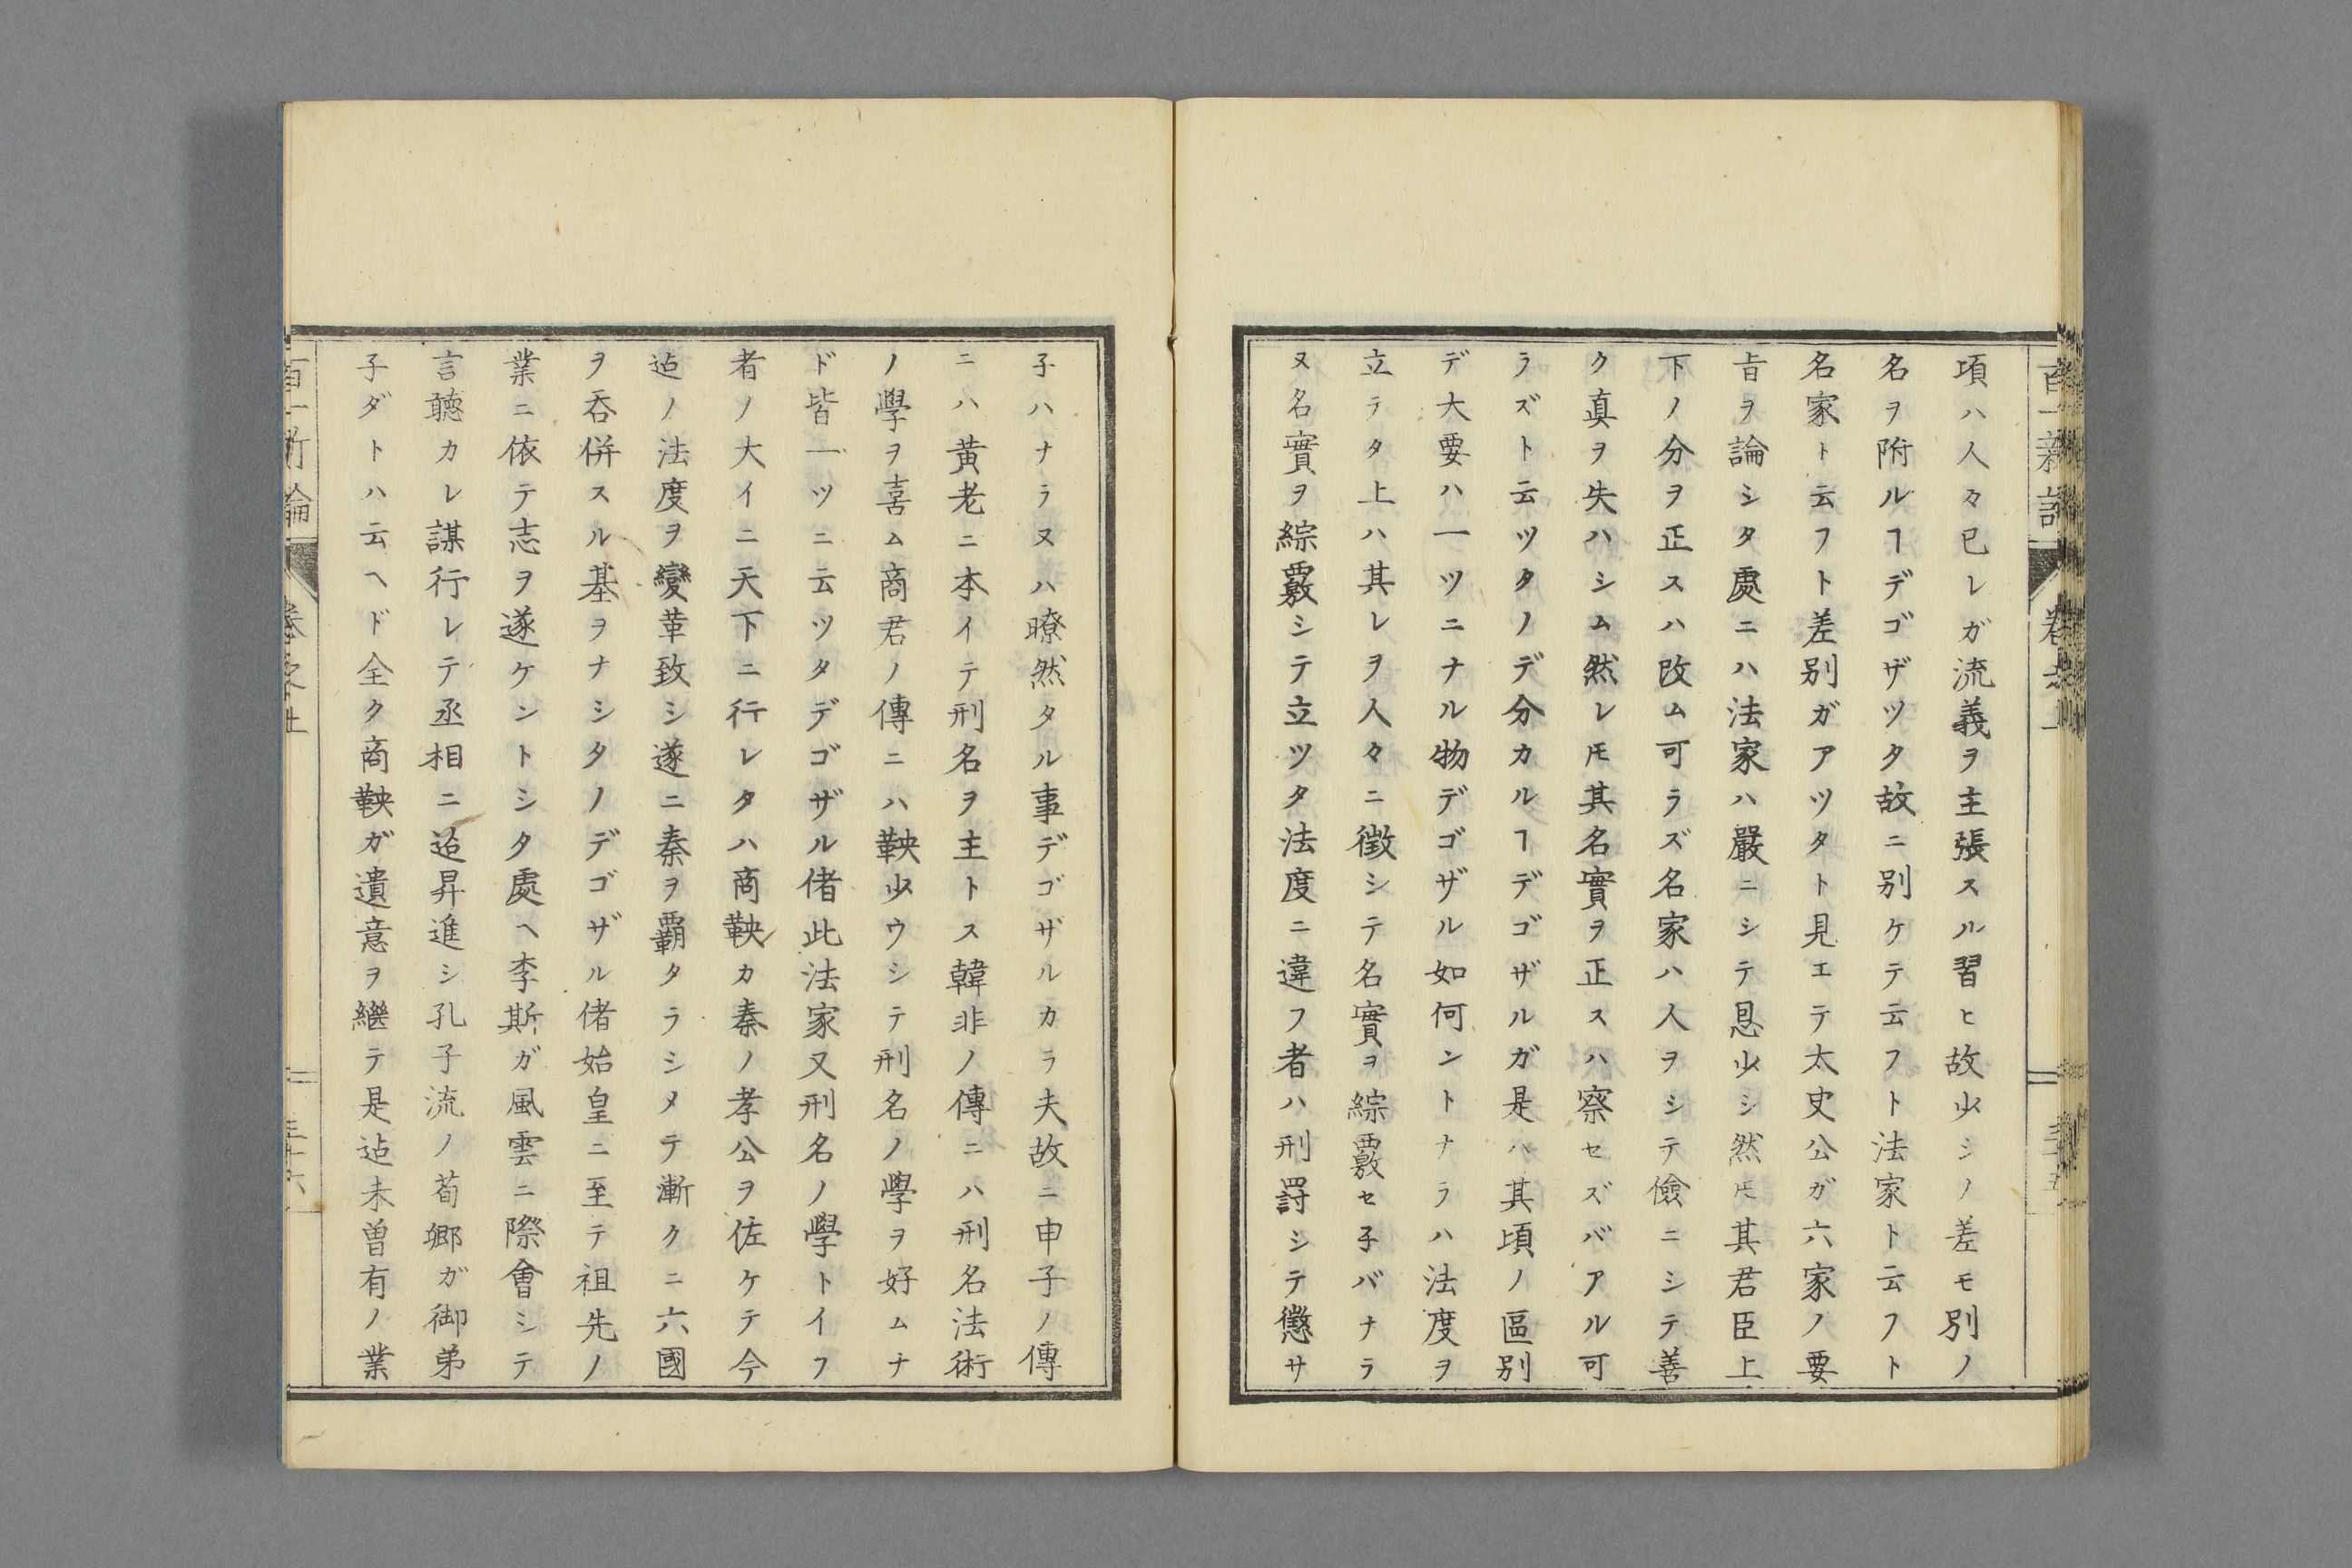 項ハ人々已レガ流義ヲ主張スル習ヒ故少シノ差モ別ノ
名ヲ附ルヿデゴザツタ故ニ別ケテ云フト法家ト云フト
名家ト云フト差別ガアツタト見エテ太史公ガ六家ノ要
旨ヲ論シタ處ニハ法家ハ嚴ニシテ恩少シ然𪜈其君臣上
下ノ分ヲ正スハ改ム可ラズ名家ハ人ヲシテ儉ニシテ善
ク真ヲ失ハシム然レ𪜈其名實ヲ正スハ察セズバアル可
ラズト云ツタノデ分カルヿデゴザルガ是ハ其頃ノ區別
デ大要ハ一ツニナル物デゴザル如何ントナラハ法度ヲ
立ラタ上ハ其レヲ人々ニ徴シテ名實ヲ綜覈セ子バナラ
ヌ名實ヲ綜覈シテ立ツタ法度ニ違フ者ハ刑罰シテ懲サ
子ハナラヌハ暸然タル事デゴザルカラ夫故ニ申子ノ傳
ニハ黄老ニ本イテ刑名ヲ主トス韓非ノ傳ニハ刑名法術
ノ學ヲ喜ム商君ノ傳ニハ鞅少ウシテ刑名ノ學ヲ好ムナ
ド皆一ツニ云ツタデゴザル偖此法家又刑名ノ學トイフ
者ノ大イニ天下ニ行レタハ商鞅カ秦ノ孝公ヲ佐ケテ今
迠ノ法度ヲ變革致シ遂ニ秦ヲ覇タラシメテ漸クニ六國
ヲ呑併スル基ヲナシタノデゴザル偖始皇ニ至テ祖先ノ
業ニ依テ志ヲ遂ケントシタ處ヘ李斯ガ風雲ニ際會シテ
言聴カレ謀行レテ丞相ニ迠昇進シ孔子流ノ荀郷ガ御弟
子ダトハ云ヘド全ク商鞅ガ遺意ヲ繼テ是迠未曽有ノ業
百一新論
卷之上
三十六